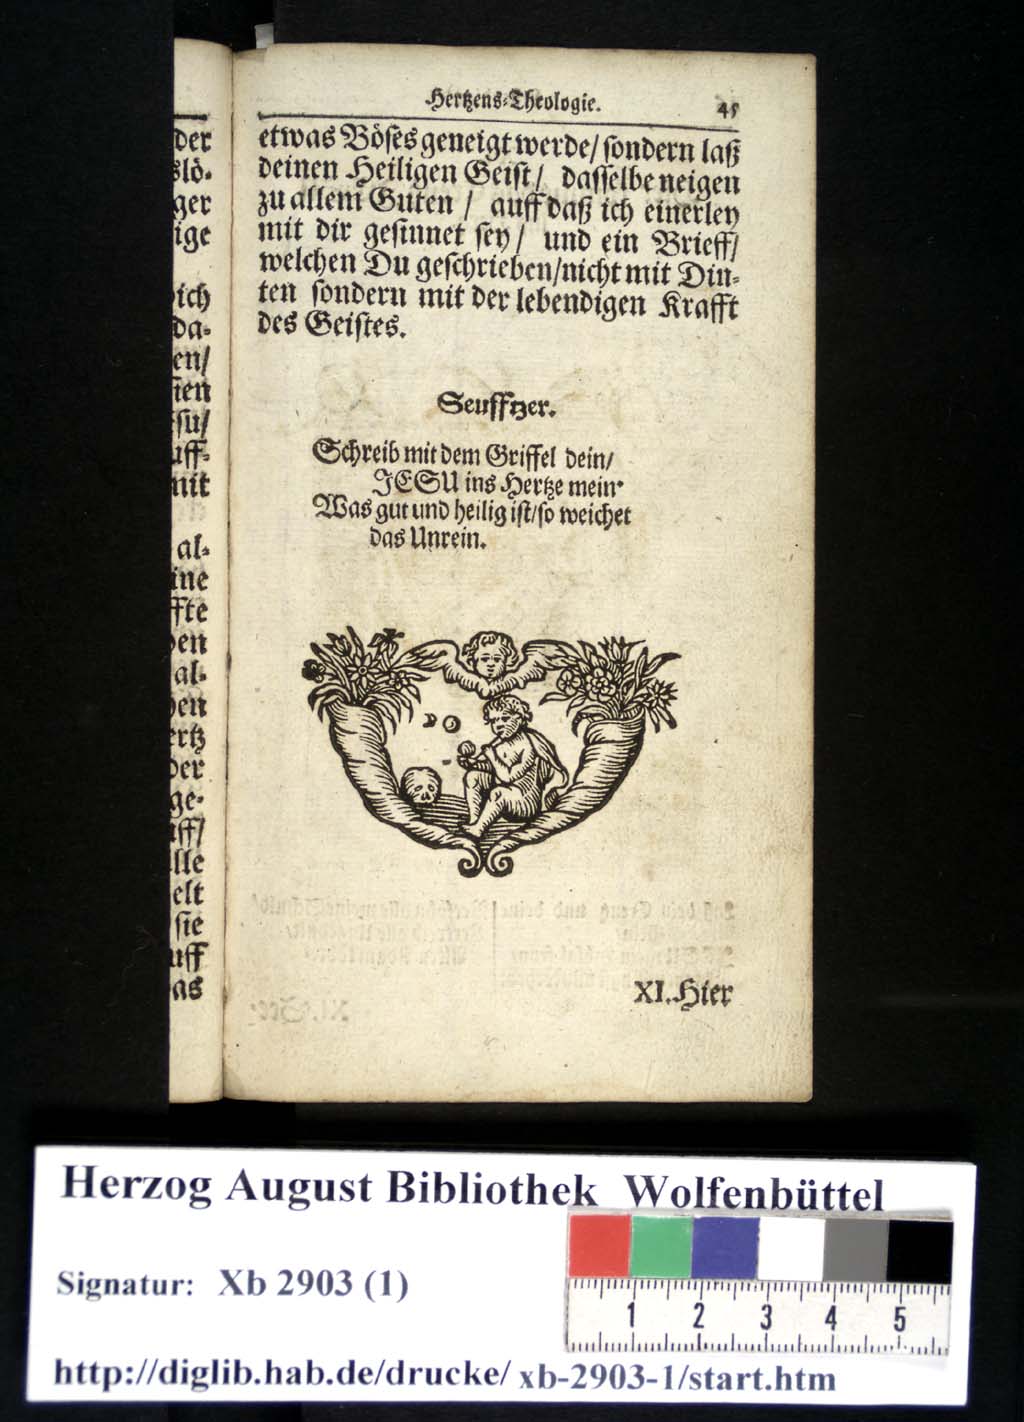 Hertzens-Theologie. 45
etwas Böses geneigt werde/ sondern laß
deinen Heiligen Geist/ dasselbe neigen
zu allem Guten / auff daß ich einerley
mit dir gesinnet sey/ und ein Brieff/
welchen Du geschrieben/nicht mit Din-
ten sondern mit der lebendigen Krafft
des Geistes.
Seufftzer.
Schreib mit dem Griffel dein/
JESU ins Hertze mein.
Was gut und heilig ist/so weichet
das Unrein.
XI. Hier
Herzog August Bibliothek Wolfenbüttel
Signatur: Xb 2903 (1)
1 2 3 4 5
http://diglib.hab.de/drucke/ xb-2903-1/start.htm